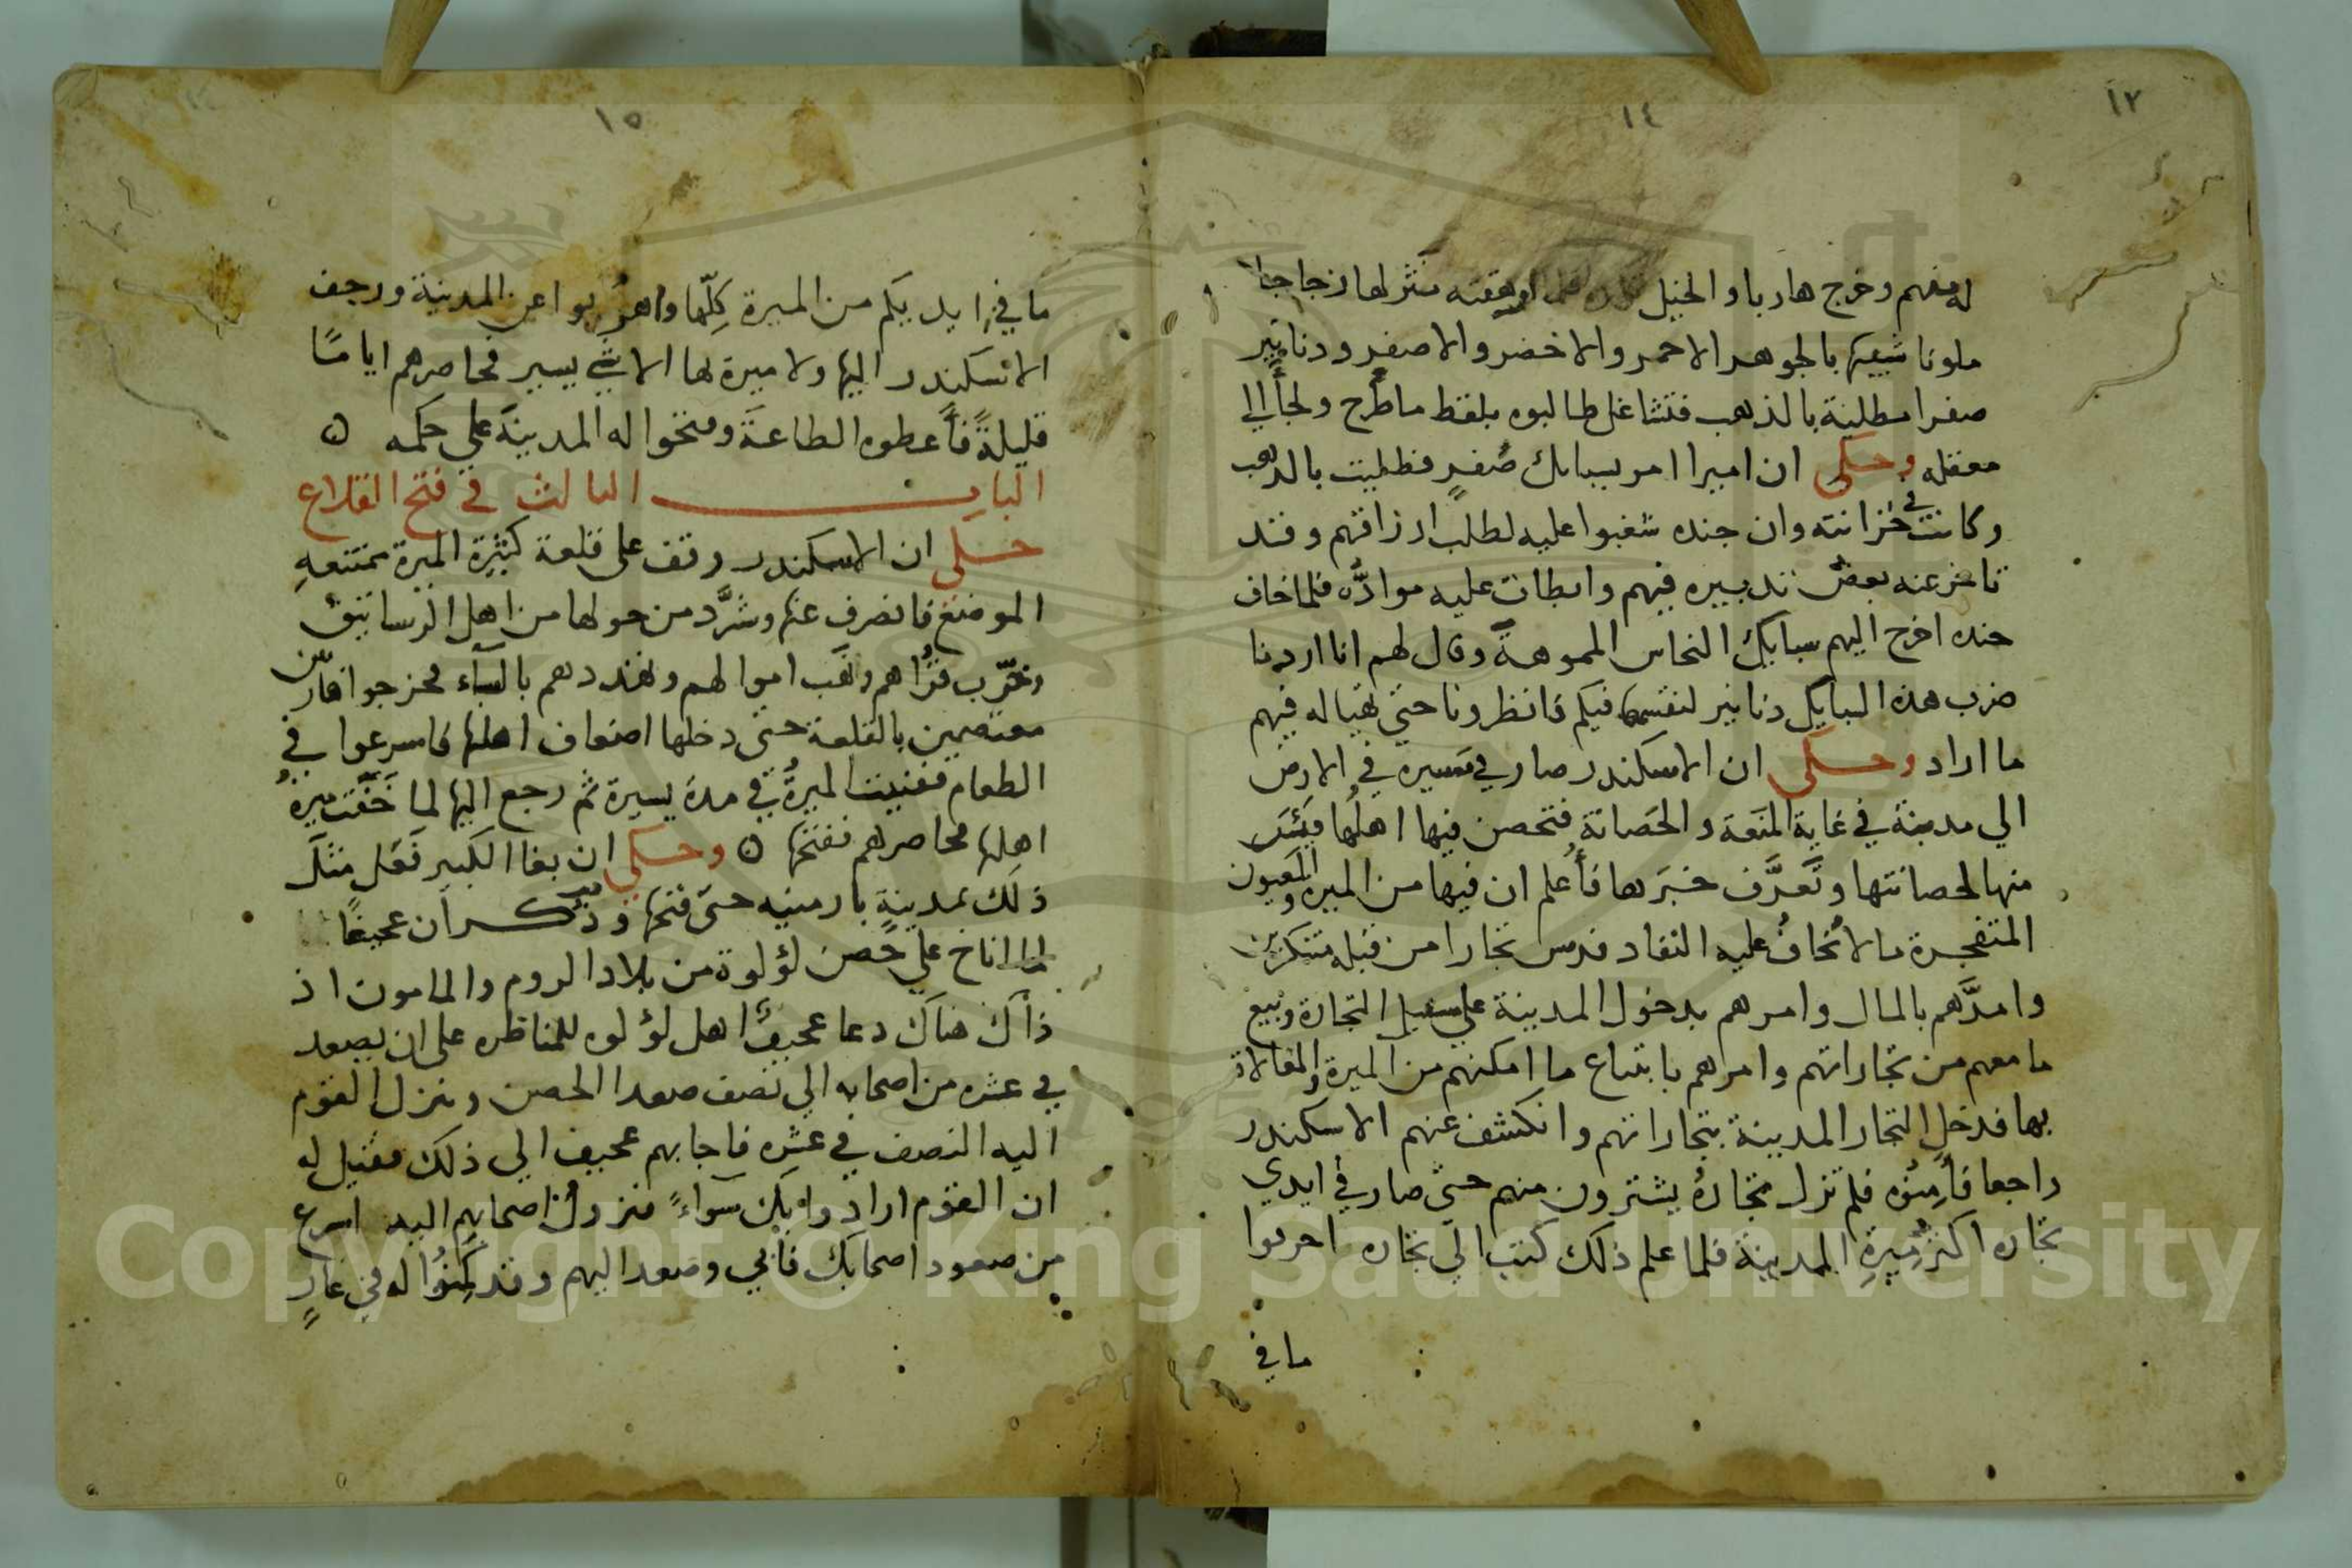 ١٢
١٤
له معهم وخرج هاربا والخيل اوهقته نثر لها زجاجا
ملونا شبيها بالجوهر الاحمر والاخضر والاصفر ودنانير
صفرا مطلية بالذهب فتشاغل طالبوه بلقط ما طرح ولجأ الي
معقله وحكي ان اميرا امر بسبائك صُفرٍ فطليت بالذهب
وكانت في خزانته وان جنده شغبوا عليه لطلب ارزاقهم وقد
تاخر عنه بعض تدبيره فيهم وابطات عليه موادُّه فلما خاف
جنده اخرج اليهم سبايك النحاس المموهة وقال لهم انا اردنا
ضرب هذه السبايك دنانير لنقسمها فيكم فانظرونا حتي تهيا له فيهم
ما اراد وحكي ان الاسكندر صار في مسيره في الارض
الي مدينة في غاية المنَعة والحَصانة فتحصن فيها اهلُها فيئس
منها لحصانتها وتَعرَّف خبرَها فأُعلم ان فيها من الميره والعيون
المتفجرة ما لا يُخافُ عليه النفاد فدس تجارا من قبله متنكرين
وامدَّهم بالمال وامرهم بدخول المدينة علي سبيل التجارة وبيع
ما معهم من تجاراتهم وامرهم بابتياع ما امكنهم من الميرة والمغالاة
بها فدخل التجار المدينة بتجاراتهم وانكشف عنهم الاسكندر
راجعا فأَمِنوُه فلم تزل تجارهُ يشترون منهم حتي صار في ايدي
تجاره اكثرُ مِيرةِ المدينة فلما علم ذلك كتب الي تجاره احرقوا
ما في
١٥
ما في ايديكم من الميرة كلّها واهرُبوا عن المدينة ورجف
الاسكندر اليها ولا ميرة لها الا شيء يسير فحاصرهم اياما
قليلةً فأَعطوه الطاعةَ وفتحوا له المدينَة علي حكمه ه
الباب الثالث في فتح القلاع
حكي ان الاسكندر وقف على قلعة كثيرة الميرة ممتنعهِ
الموضع فانصرف عنها وشرَّد من حولها من اهل الرساتيق
وخرّب قُرَاهم ونهَب اموالهم وهددهم بالسباء فخرجوا هاربين
معتصمين بالقلعة حتي دخلها اضعاف اهلها فاسرعوا في
الطعام ففنيت الميرةُ في مدة يسيرة ثم رجع اليها لما خَفّت ميرةُ
اهلها فحاصرهم ففتحها ه وحكي ان بغا الكبير فَعَل مثل
ذلك بمدينةٍ بارمنيه حتى فتحها وذكر ان عجيفًا
لما اناخ علي حصن لؤلوة من بلاد الروم والمامون اذ
ذاك هناك دعا عجيفٌ اهل لؤلوه للمناظره على ان يصعد
في عشره من اصحابه الي نصف صعد الحصن وينزل القوم
اليه النصف في عشره فاجابهم عجيف الي ذلك فقيل له
ان القوم ارادوا بك سواءً فنزولُ اصحابهم اليه اسرع
من صعود اصحابك فأبي وصعد اليهم وقد كمِنوُا له في غارٍ